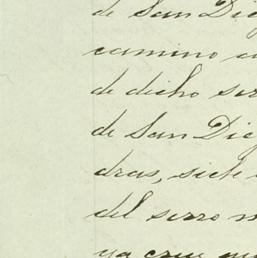 de San Die
camino
de dicho
de San Die
dras, siete
del serro
ya cruz